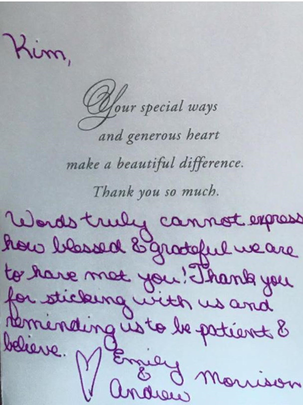 Kim,
Your special ways
and generous heart
make a beautiful difference.
Thank you so much.
Words truly cannot express
how blessed & grateful we are
to have met you! Thank you
for sticking with us and
reminding us to be patient &
believe.
Emily
&
Andrew Morrison